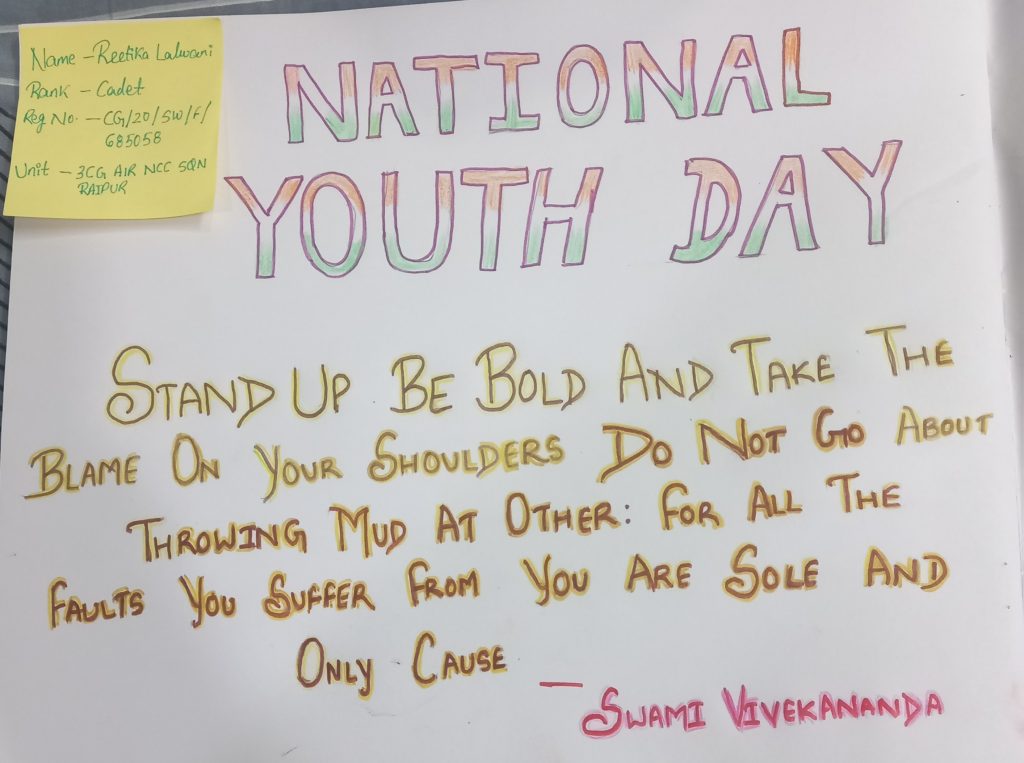 Name - Reetika Lalwani
Rank - Cadet
Reg No. - CG/20/SW/F/
685058
Unit - 3CG AIR NCC SQN
RAIPUR
NATIONAL
YOUTH DAY
STAND UP BE BOLD AND TAKE THE
BLAME ON YOUR SHOULDERS DO NOT GO ABOUT
THROWING MUD AT OTHER: FOR ALL THE
FAULTS YOU SUFFER FROM YOU ARE SOLE AND
ONLY CAUSE
- SWAMI VIVEKANANDA